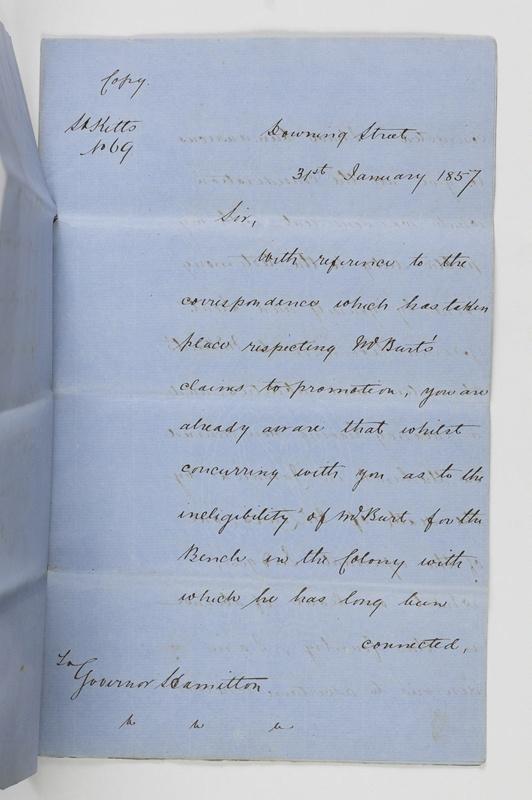 Copy.
St Kitts
No 69
Downing Street
31st January 1857
Sir,
With reference to the
correspondence which has taken
place respecting Mr Burt's
claims to promotion, you are
already aware that whilst
concurring with you as to the
ineligibility of Mr Burt for the
Bench in the Colony with
which he has long been
connected,
Governor Hamilton